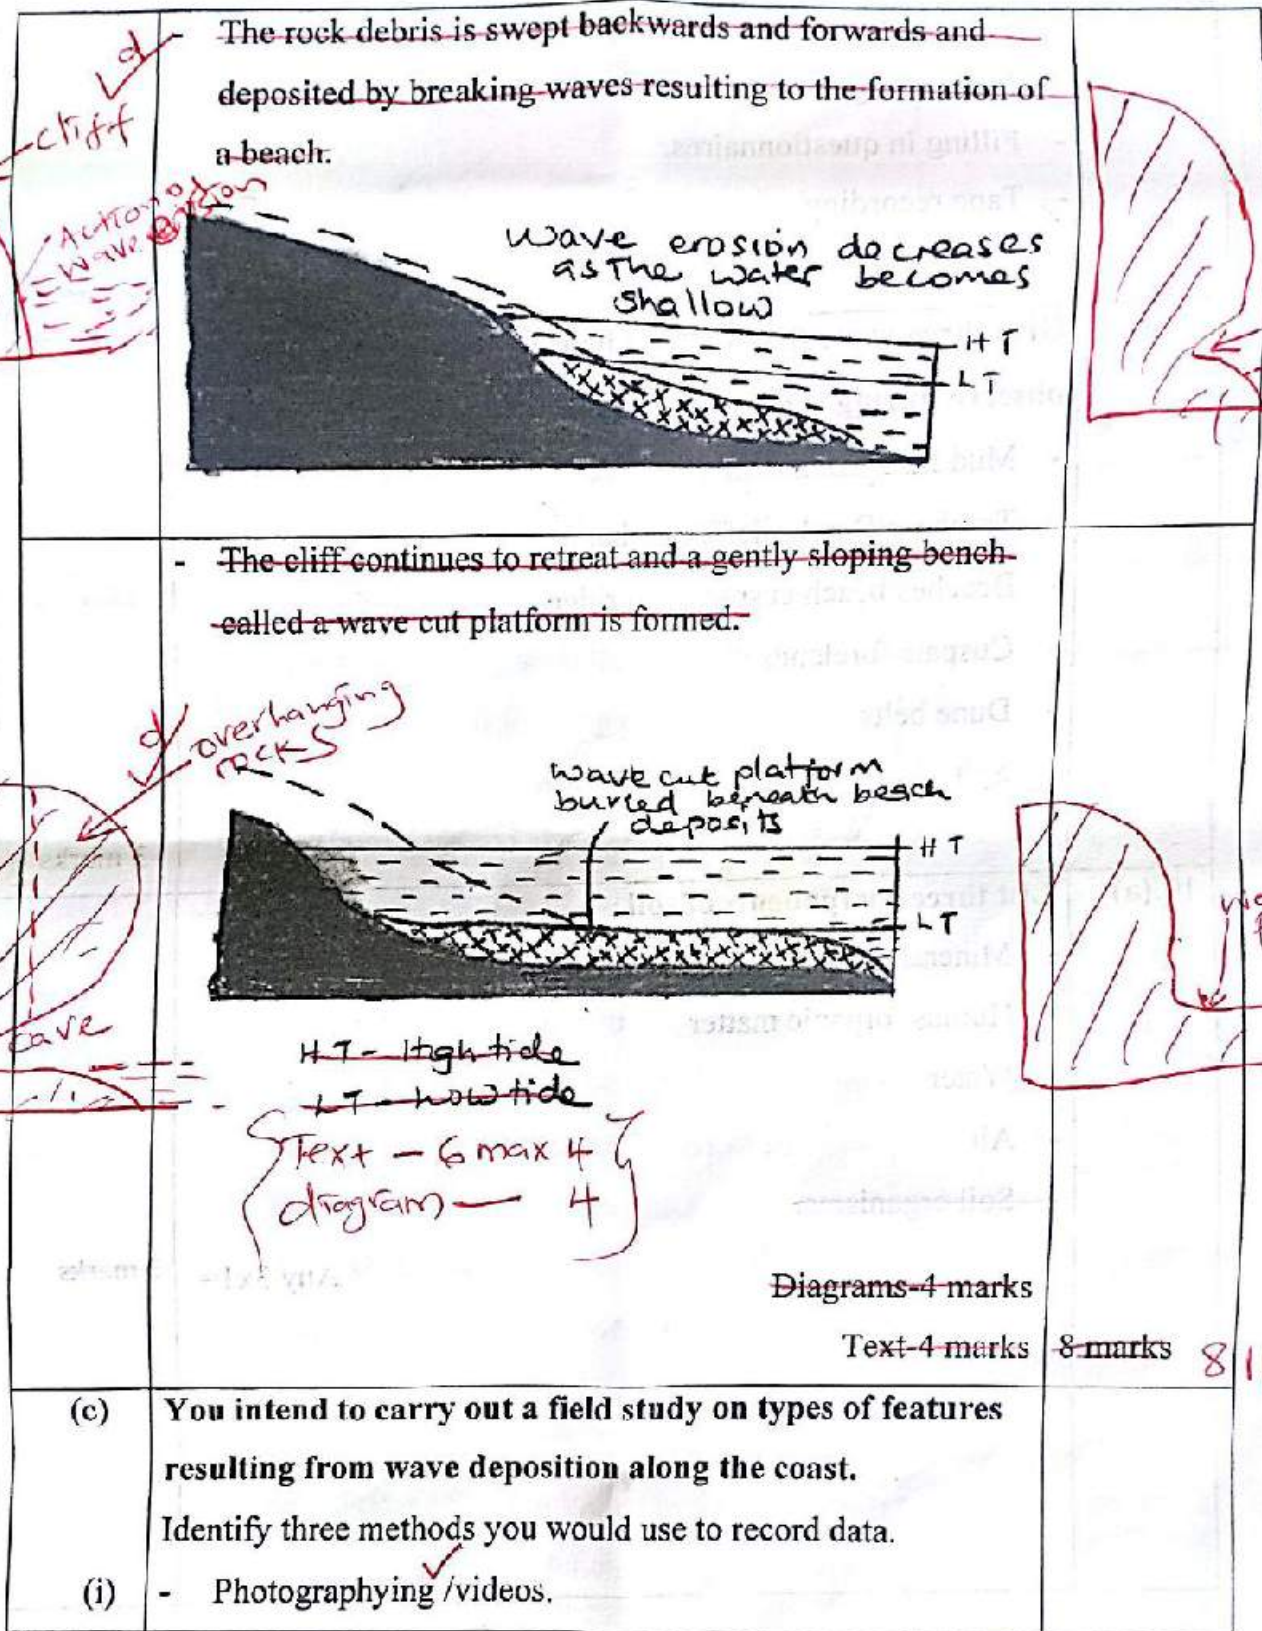 - The rock debris is swept backwards and forwards and
deposited by breaking waves resulting to the formation of
a beach.
d
cliff
Action of
wave erosion
wave erosion decreases
as The water becomes
shallow
HT
LT
- The cliff continues to retreat and a gently sloping bench
called a wave cut platform is formed.
d
overhanging
rocks
wave cut platform
buried beneath beach
deposits
HT
LT
cave
HT - High tide
LT - Low tide
Text - 6 max 4
diagram - 4
Diagrams-4 marks
Text-4 marks 8 marks 8
(c) You intend to carry out a field study on types of features
resulting from wave deposition along the coast.
Identify three methods you would use to record data.
(i) - Photographying /videos.